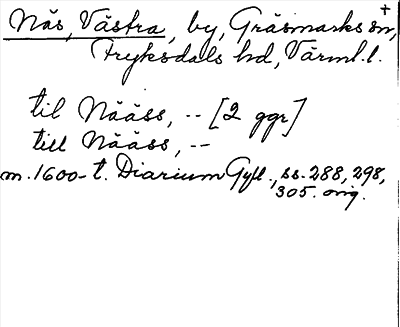 Näs, Västra, by, Gräsmarks sn, +
Fryksdals hd, Värml.l.
til Nääss, -- [2 ggr]
till Nääss, --
m. 1600-t. Diarium Gyll., ss. 288, 298,
305. orig.